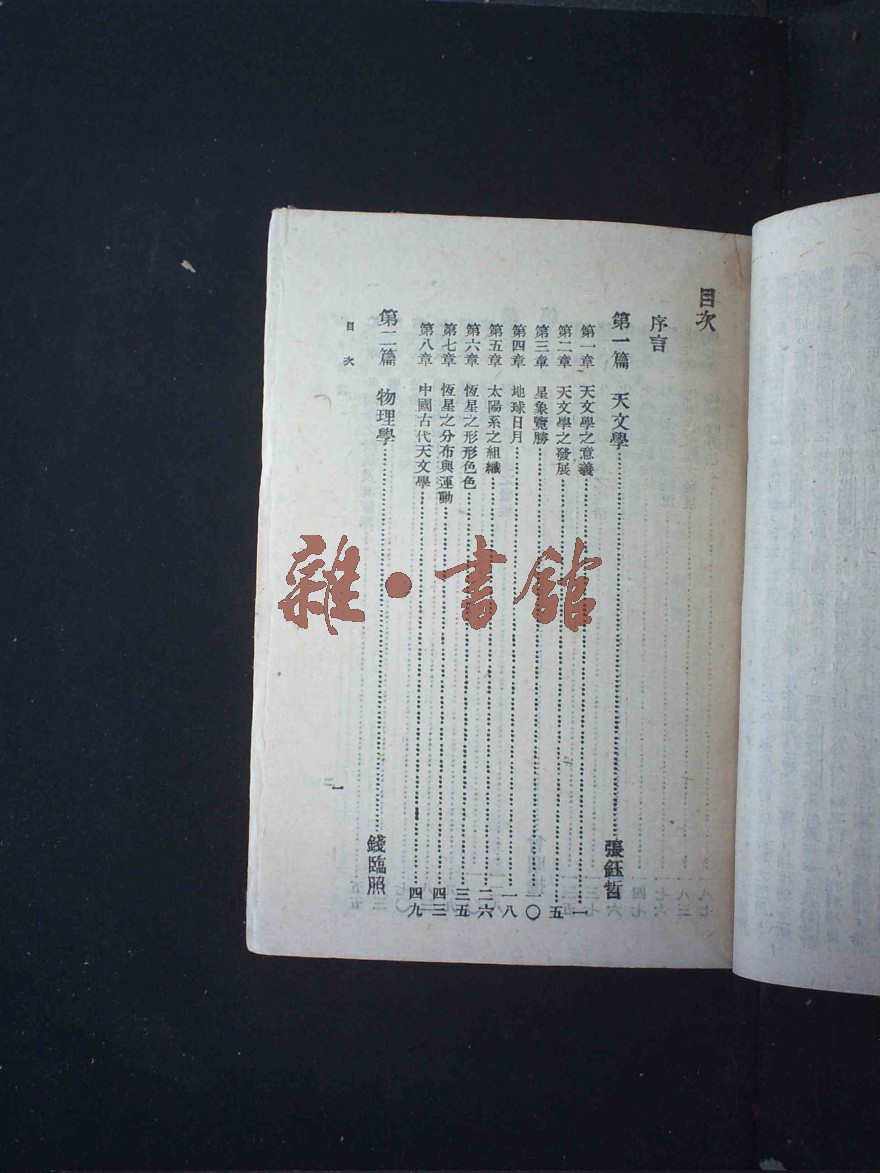 目次
序言
第一篇 天文學 張鈺哲
第一章 天文學之意義 一
第二章 天文學之發展 五
第三章 星象覽勝 一〇
第四章 地球日月 一八
第五章 太陽系之組織 二六
第六章 恆星之形形色色 三五
第七章 恆星之分布與運動 四三
第八章 中國古代天文學 四九
第二篇 物理學 錢臨照
目次 一
雜·書館